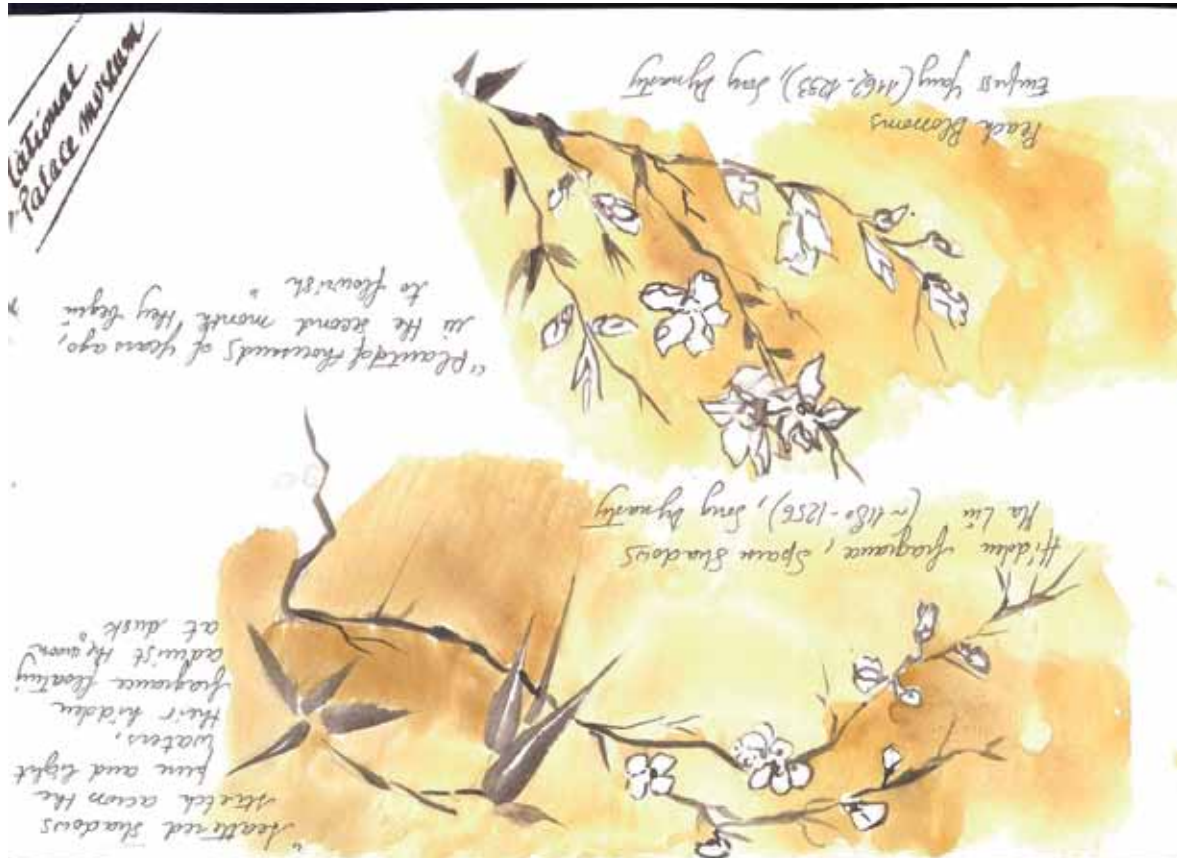 National
Palace Museum
Peach Blossoms
Empress Yang (1162-1233), Song Dynasty
"Planted of thousands of years ago,
in the second month they begin
to flourish"
Hidden fragrance, Sparse Shadows
Ma Lin (~1180-1256), Song Dynasty
"Scattered shadows
stretch across the
pure and light
waters,
their hidden
fragrance floating
admist the moon
at dusk"